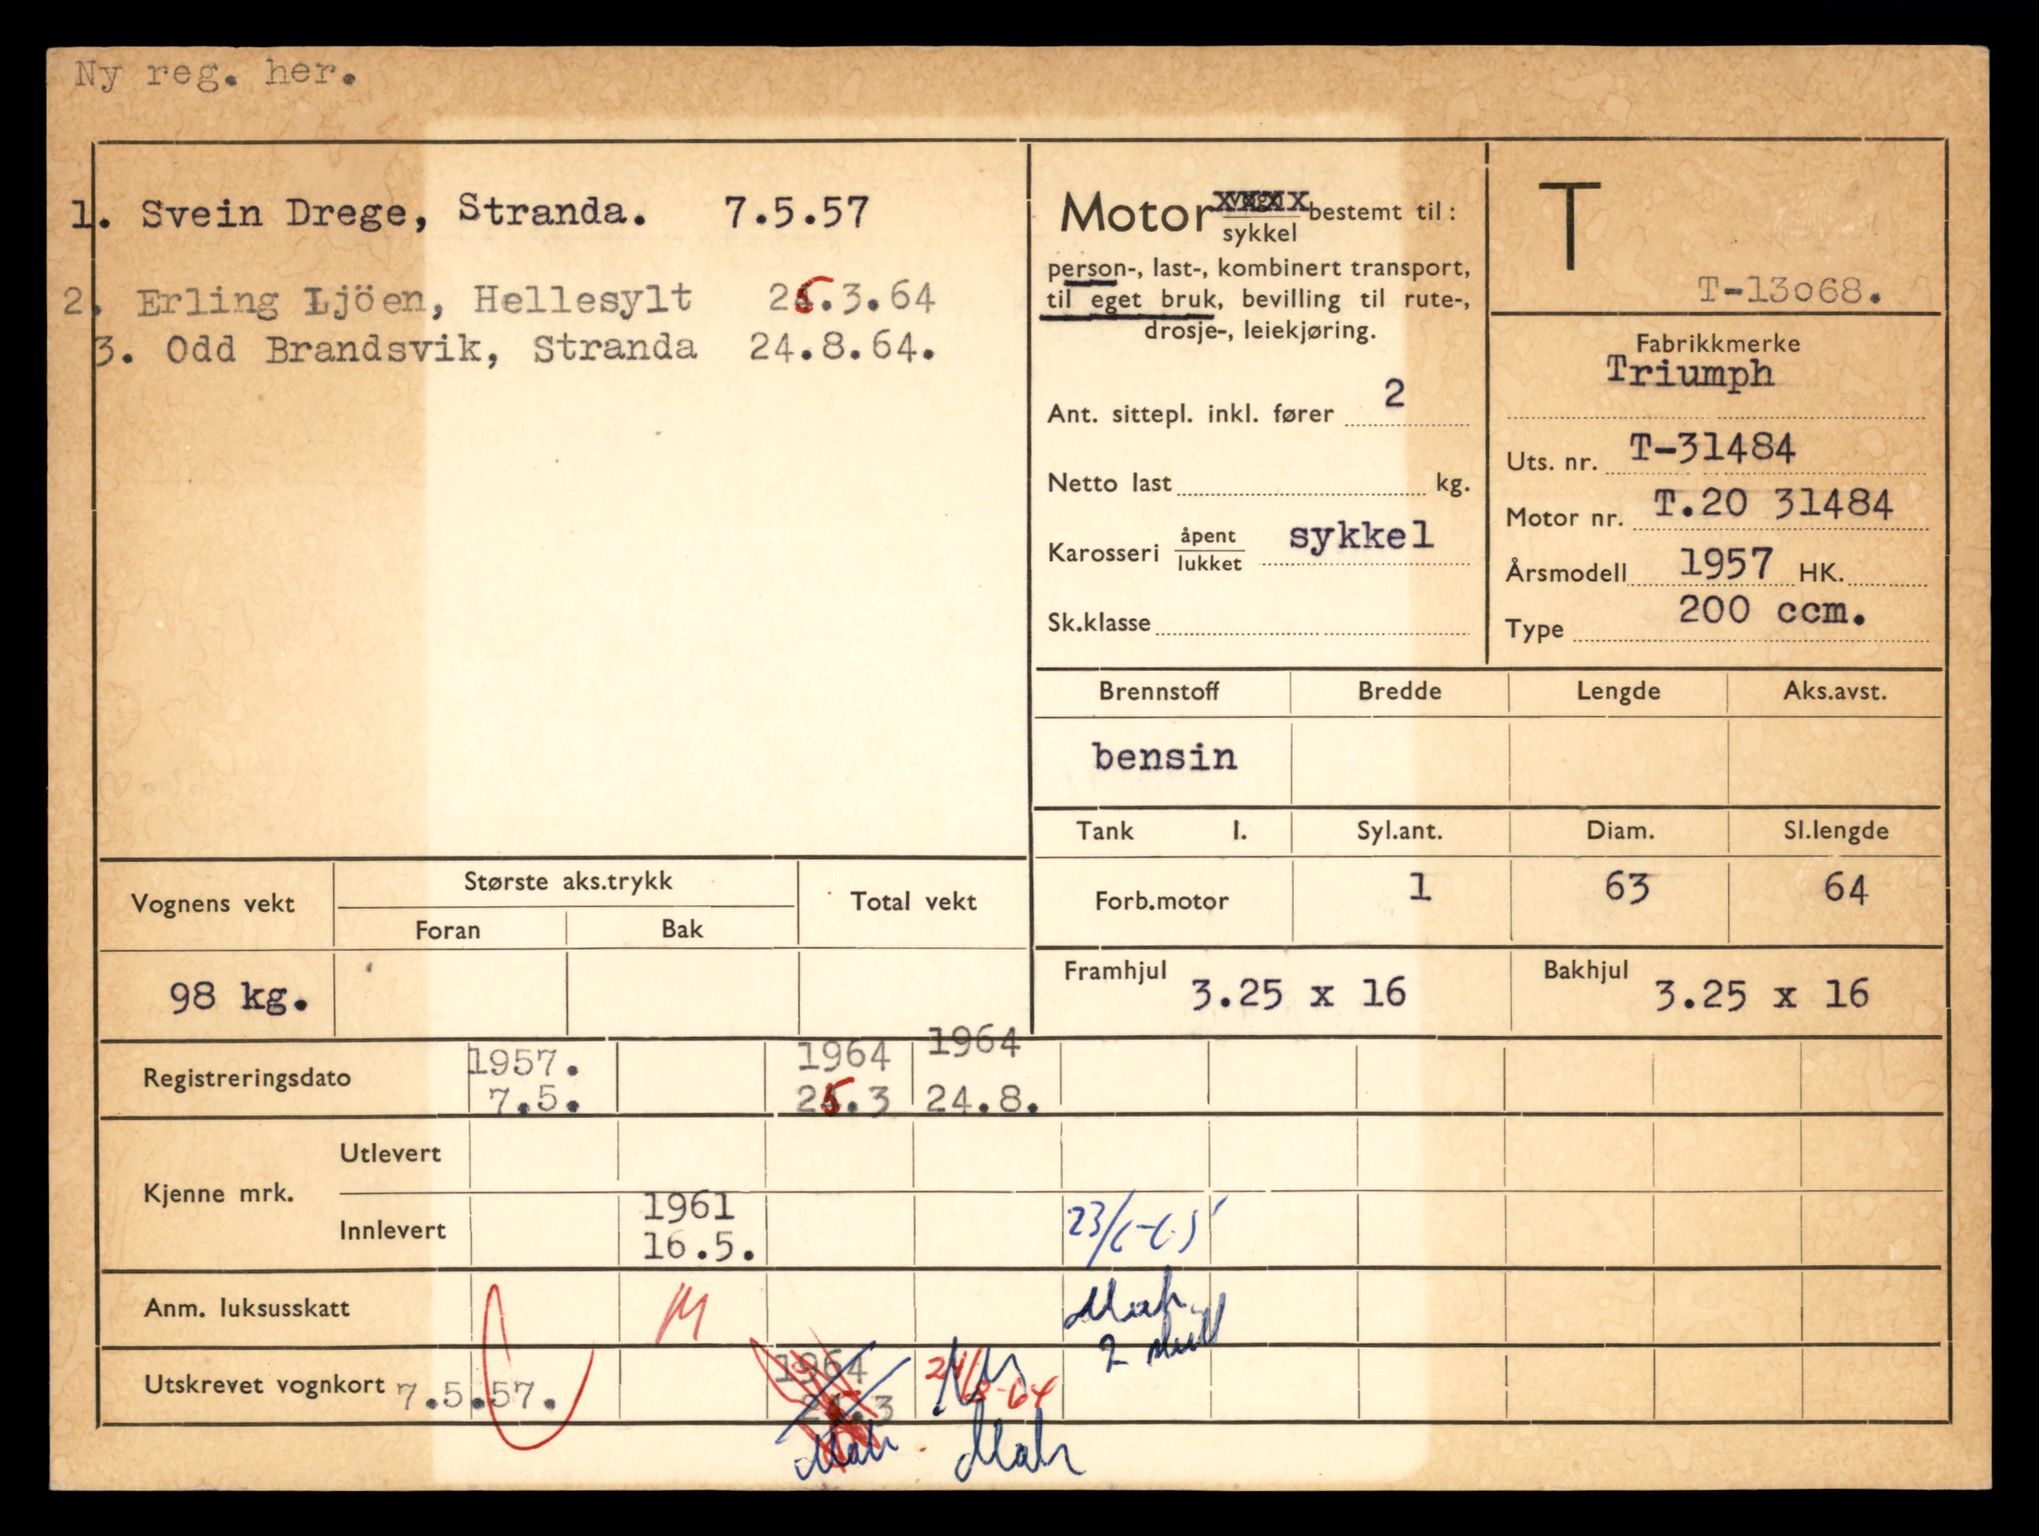 Ny reg. her.
1. Svein Drege, Stranda. 7.5.57
2. Erling Ljöen, Hellesylt 25.3.64
3. Odd Brandsvik, Stranda 24.8.64.
Motor
sykkel bestemt til:
person-, last-, kombinert transport,
til eget bruk, bevilling til rute-,
drosje-, leiekjøring.
Ant. sittepl. inkl. fører 2
Netto last kg.
Karosseri åpent
lukket sykkel
Sk.klasse
T
T-13068.
Fabrikkmerke
Triumph
Uts. nr. T-31484
Motor nr. T.20 31484
Årsmodell 1957 HK.
Type 200 ccm.
Brennstoff Bredde Lengde Aks.avst.
bensin
Tank l. Syl.ant. Diam. Sl.lengde
Forb.motor 1 63 64
Framhjul 3.25 x 16 Bakhjul 3.25 x 16
Vognens vekt Største aks.trykk Total vekt
Foran Bak
98 kg.
Registreringsdato 1957. 1964 1964
7.5. 25.3 24.8.
Kjenne mrk. Utlevert
Innlevert 1961
16.5.
Anm. luksusskatt M
Utskrevet vognkort 7.5.57. 1964 24/8-64